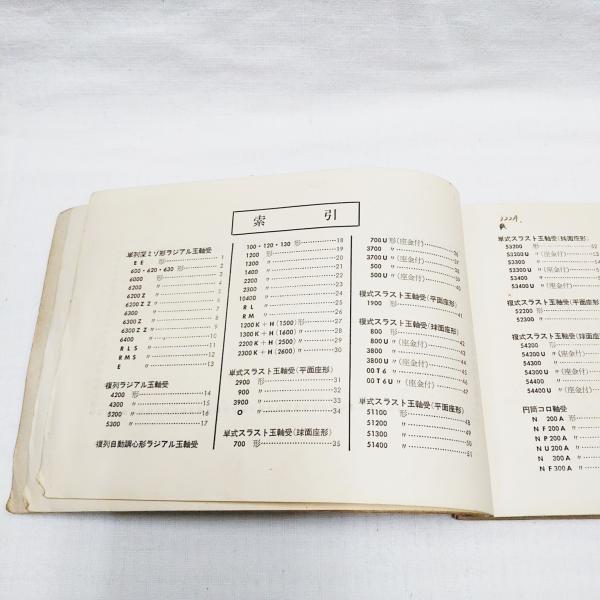 索引
単列深ミゾ形ラジアル玉軸受
EE 形 1
600・620・630 形 2
6000 〃 3
6200 〃
6200Z 〃
6200ZZ 〃
6300 〃
6300Z 〃
6300ZZ 〃 9
6400 〃 10
RLS 〃 11
RMS 〃 12
E 〃 13
複列ラジアル玉軸受
4200 形 14
4300 〃 15
5200 〃 16
5300 〃 17
複列自動調心形ラジアル玉軸受
100・120・130 形 18
1200 形 19
1300 〃 20
1400 〃 21
2200 〃 22
2300 〃 23
10400 〃 24
RL 〃 25
RM 〃 26
1200K+H (1500) 形 27
1300K+H (1600) 〃 28
2200K+H (2500) 〃 29
2300K+H (2600) 〃 30
単式スラスト玉軸受(平面座形)
2900 形 31
900 〃 32
3900 〃 33
O 〃 34
単式スラスト玉軸受(球面座形)
700 形 35
700U 形(座金付) 36
3700 〃 37
3700U 〃(座金付) 38
500 〃 39
500U 〃(座金付) 40
複式スラスト玉軸受(平面座形)
1900 形 41
複式スラスト玉軸受(球面座形)
800 形 42
800U 〃(座金付) 43
3800 〃 44
3800U 〃(座金付) 45
00T6 〃 46
00T6U 〃(座金付) 47
単式スラスト玉軸受(平面座形)
51100 形 48
51200 〃 49
51300 〃 50
51400 〃 51
単式スラスト玉軸受(球面座形)
53200 形 52
53200U 〃(座金付)
53300 〃
53300U 〃(座金付)
53400 〃
53400U 〃(座金付)
複式スラスト玉軸受(平面座形)
52200 形
52300 〃
複式スラスト玉軸受(球面座形)
54200 形
54200U 〃(座金付)
54300 〃
54300U 〃(座金付)
54400 〃
54400U 〃(座金付)
円筒コロ軸受
N 200A 形
NF200A 〃
NP200A 〃
NU200A 〃
N 300A 〃
NF300A 〃